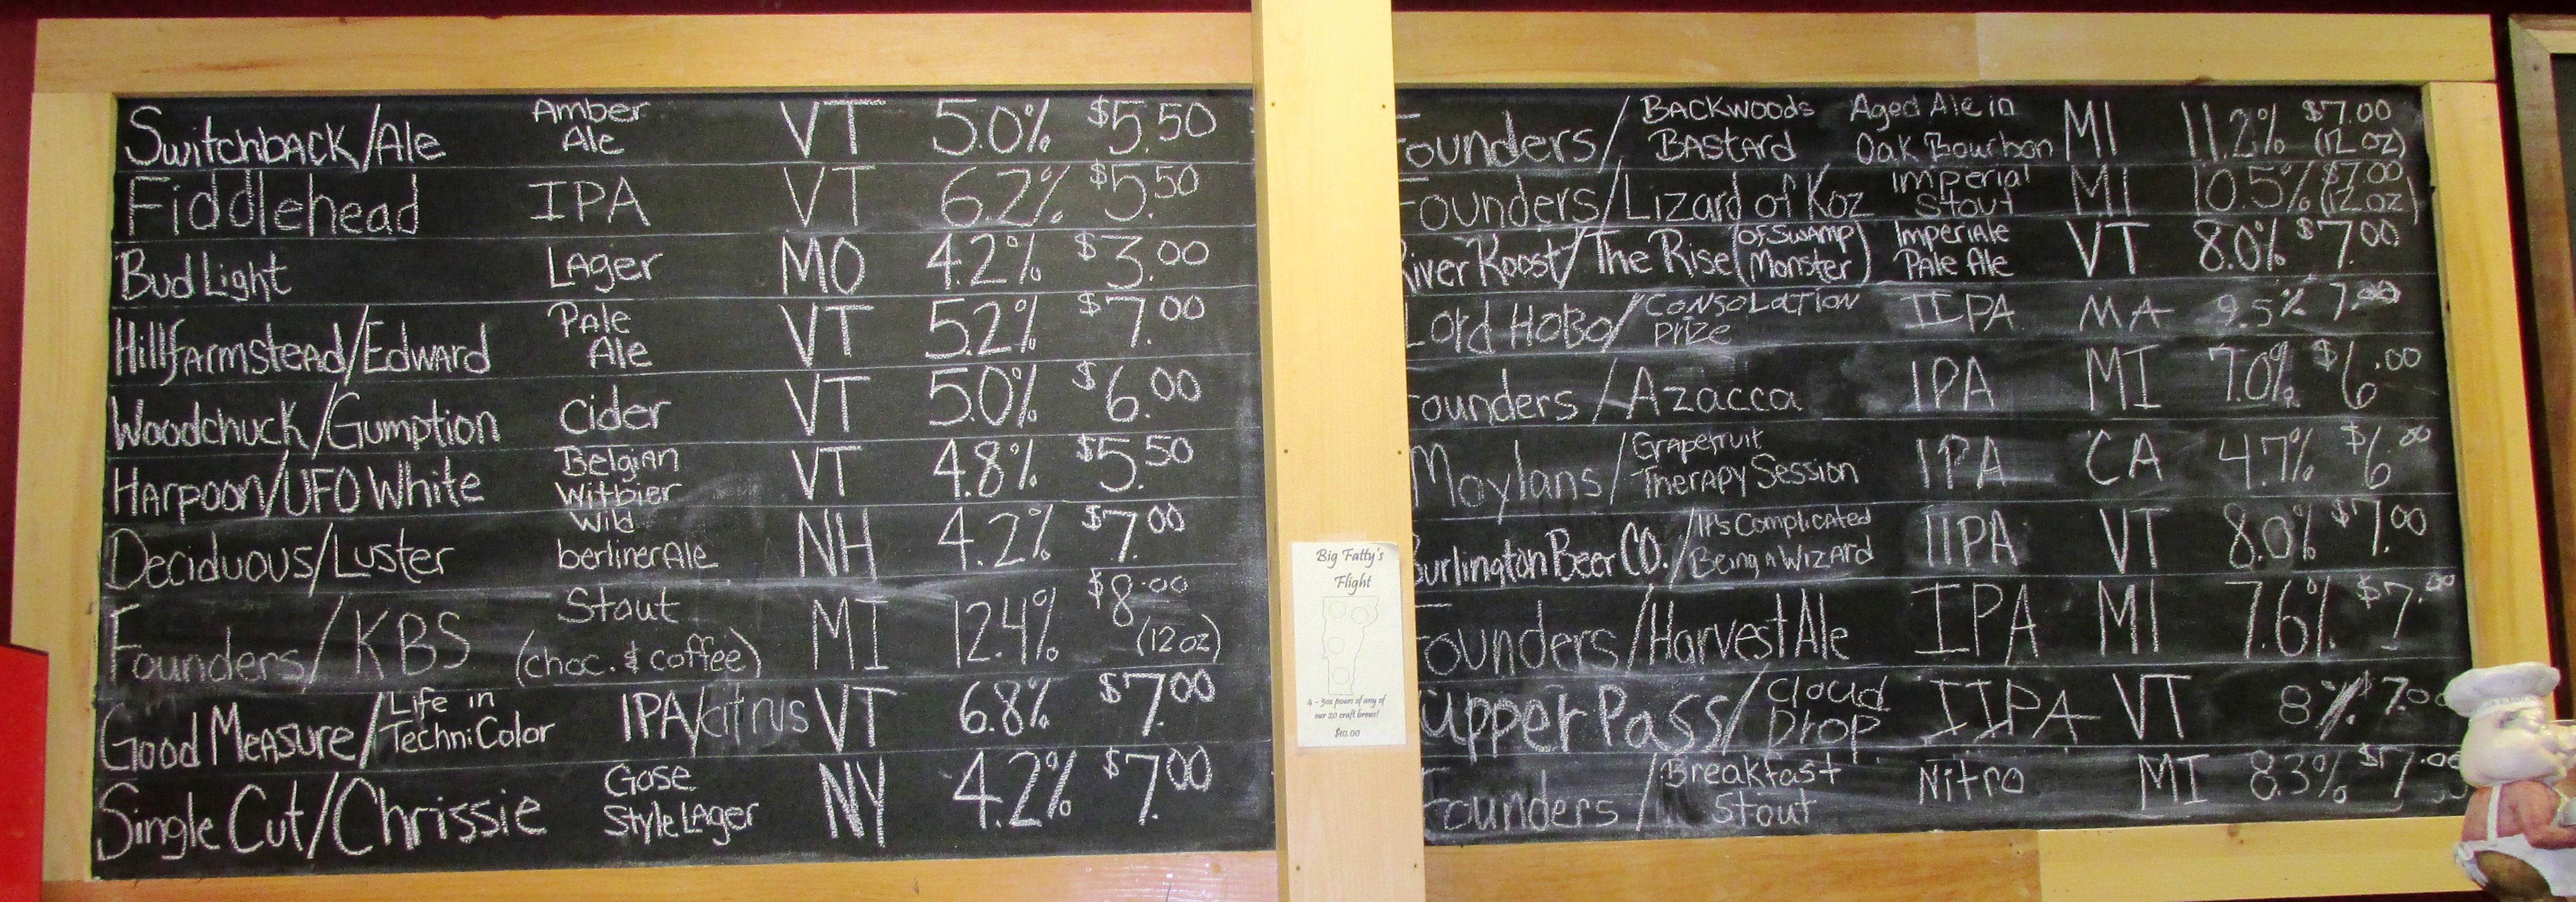 Switchback/Ale Amber Ale VT 5.0% $5.50
Fiddlehead IPA VT 6.2% $5.50
Bud Light Lager MO 4.2% $3.00
Hillfarmstead/Edward Pale Ale VT 5.2% $7.00
Woodchuck/Gumption Cider VT 5.0% $6.00
Harpoon/UFO White Belgian Witbier VT 4.8% $5.50
Deciduous/Luster Wild berliner Ale NH 4.2% $7.00
Founders/KBS Stout (choc. & coffee) MI 12.4% $8.00 (12 oz)
Good Measure/Life in TechniColor IPA/citrus VT 6.8% $7.00
Single Cut/Chrissie Gose Style Lager NY 4.2% $7.00
Big Fatty's
Flight
4 - 5oz pours of any of
our 20 craft brews!
$10.00
Founders/BACKWOODS BASTARD Aged Ale in Oak Bourbon MI 11.2% $7.00 (12 oz)
Founders/Lizard of Koz Imperial Stout MI 10.5% $7.00 (12 oz)
River Roost/The Rise (of Swamp Monster) Imperiale Pale Ale VT 8.0% $7.00
Lord Hobo/Consolation Prize IIPA MA 9.5% 7.00
Founders/Azacca IPA MI 7.0% $6.00
Moylans/Grapefruit Therapy Session IPA CA 4.7% $6.00
Burlington Beer CO./It's Complicated Being A Wizard IIPA VT 8.0% $7.00
Founders/Harvest Ale IPA MI 7.6% $7.00
Upper Pass/Cloud Drop IIPA VT 8% $7.00
Founders/Breakfast Stout Nitro MI 8.3% $7.00